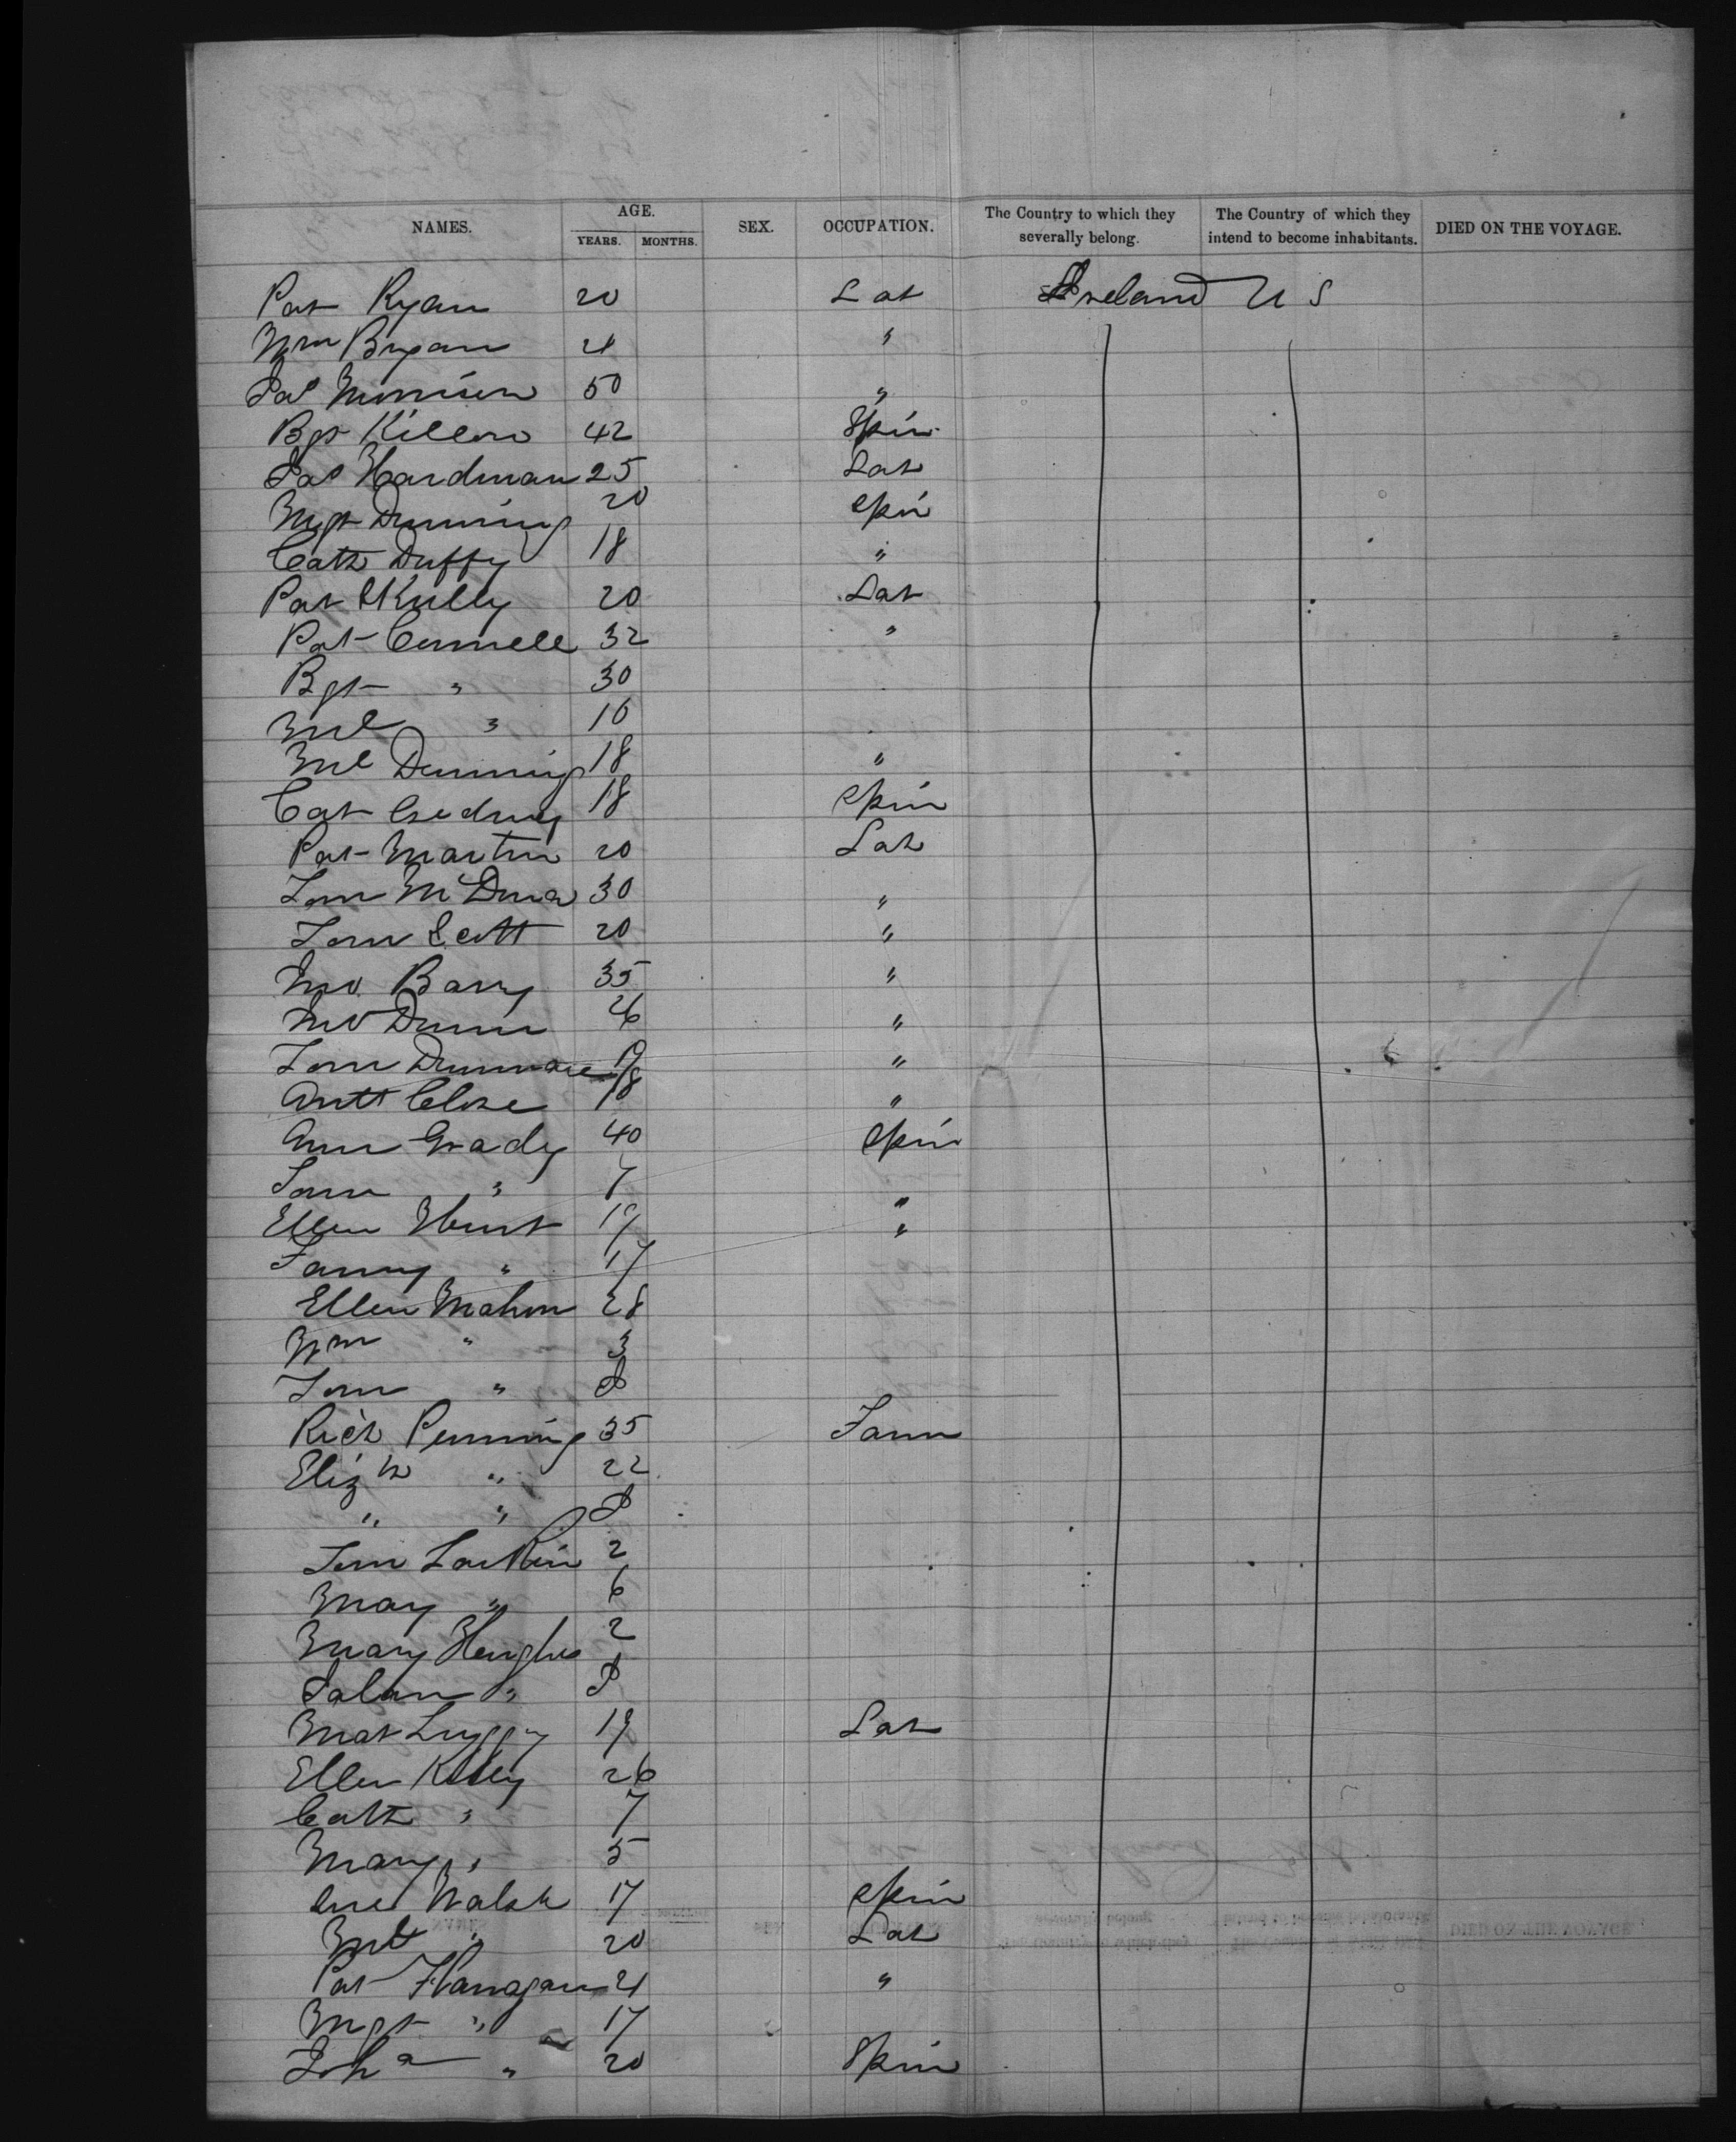 NAMES. AGE. YEARS. MONTHS. SEX. OCCUPATION. The Country to which they severally belong. The Country of which they intend to become inhabitants. DIED ON THE VOYAGE.
Pat Ryan 20 Lab Ireland U S
Wm Bryan 21 "
Pat Morrison 50 "
Bgt Killon 42 Spin
Pat Hardman 25 Lab
Mgt Dunning 20 Spin
Cath Duffy 18 "
Pat Kelly 20 Lab
Pat Connell 32 "
Bgt " 30
Ml " 10
Ml Dunning 18 "
Cat 18 Spin
Pat Martin 20 Lab
Tom 30 "
Tom Scott 20 "
Jno Barry 35 "
Jno Dunn 26 "
Tom 19 "
Antt Close 18 "
Ann Grady 40 Spin
Tom " 7
Ellen Hunt 19 "
Fanny " 17
Ellen Mahon 28
Wm " 3
Tom "
Rich 35 Farm
Elizth " 22
" "
Tom Larkin 2
Mary " 6
Mary Hughes 2
"
Mat 19 Lab
Ellen Kelly 26
Cath " 7
Mary " 5
Walsh 17 Spin
Ml " 20 Lab
Pat Flanagan 21 "
Mgt " 17
Joha " 20 Spin